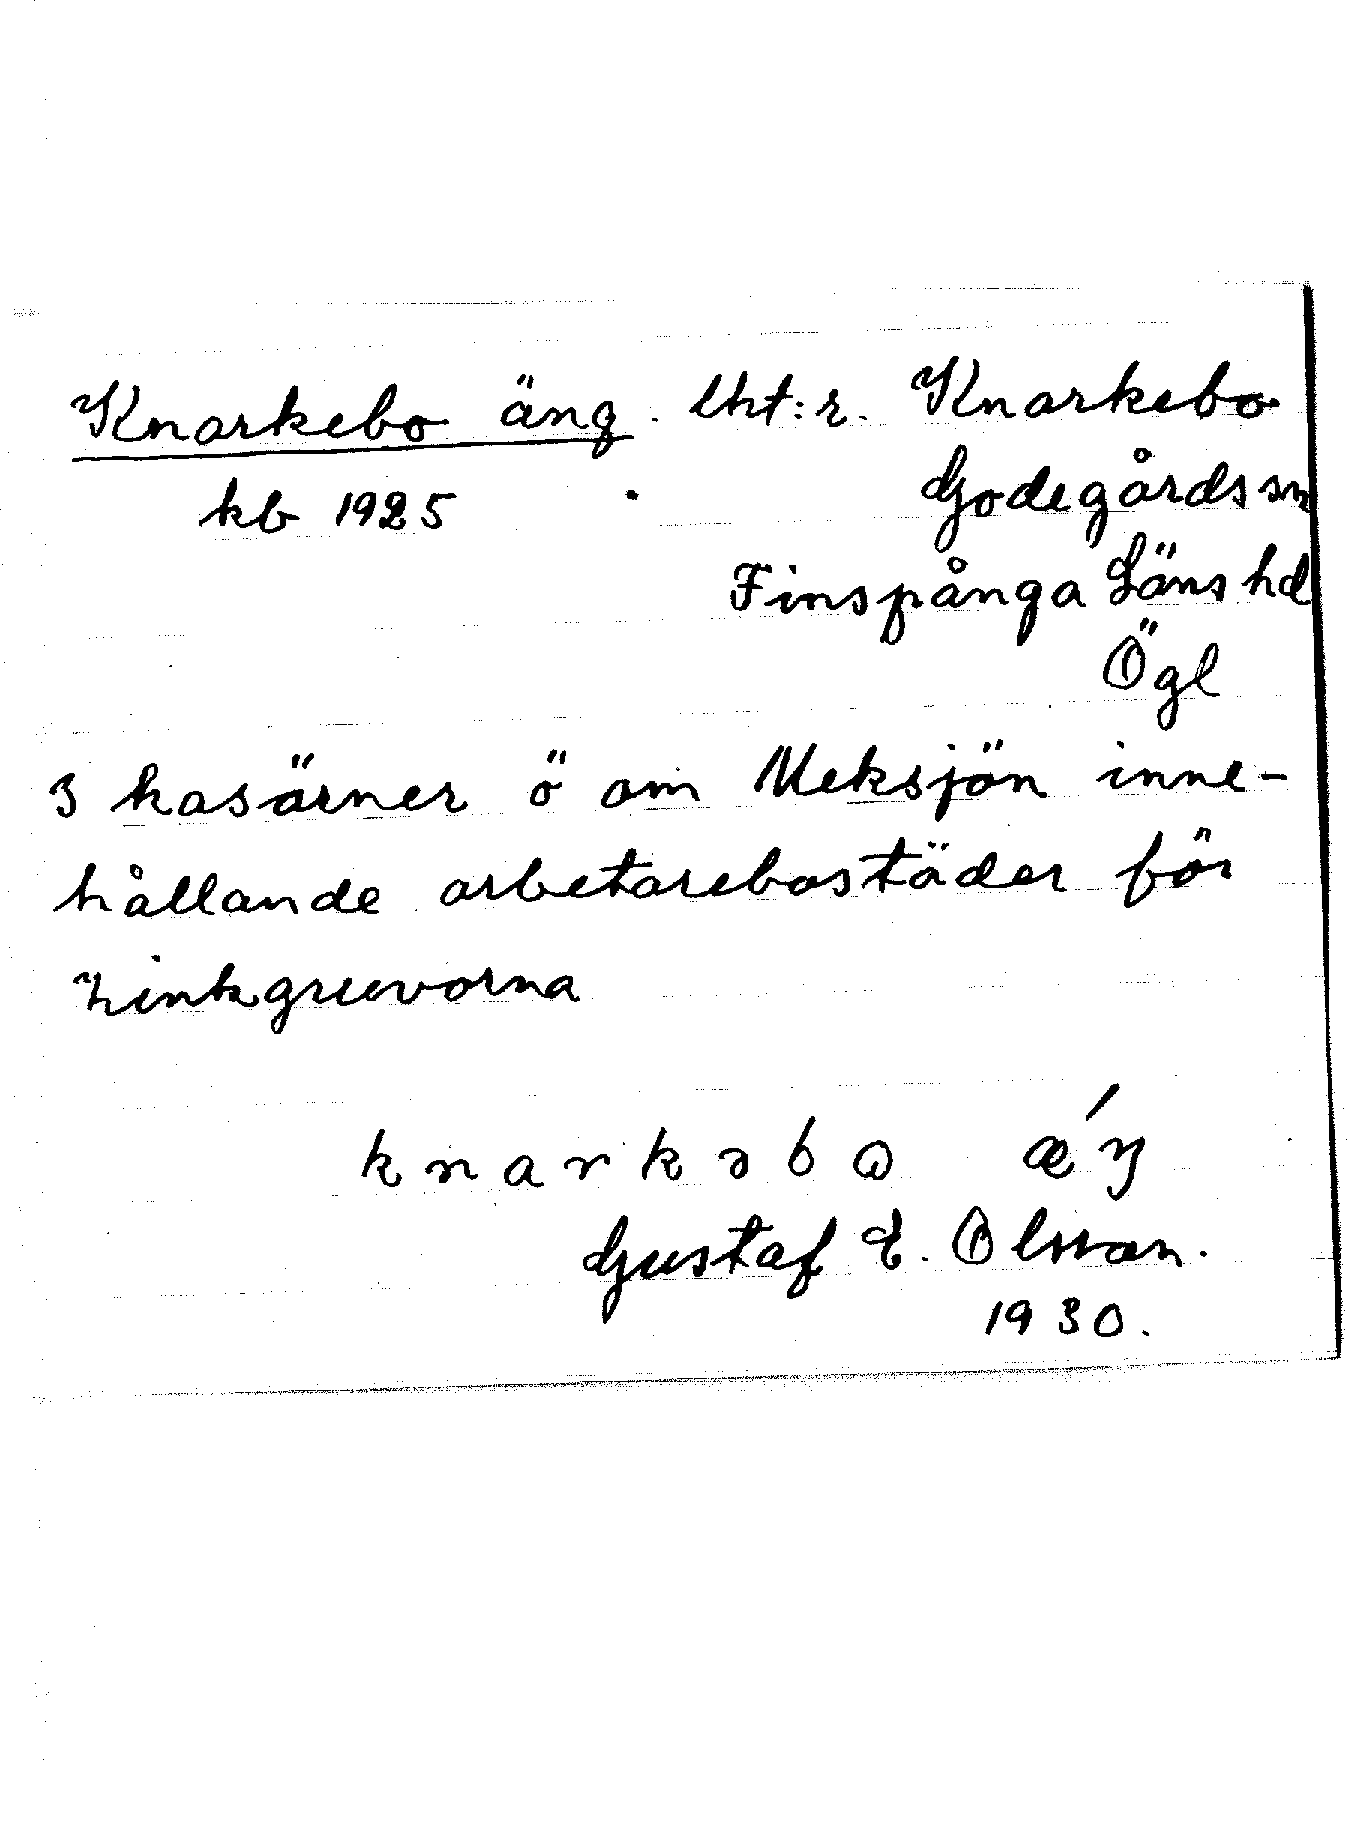 Knarkebo äng. lht:r. Knarkebo
kb 1925 Godegårds sn
Finspånga Läns hd
Ögl
3 kasärner ö om Meksjön inne-
hållande arbetarebostäder för
zinkgruvorna
knarkəbo ǽŋ
Gustaf E. Olsson.
1930.